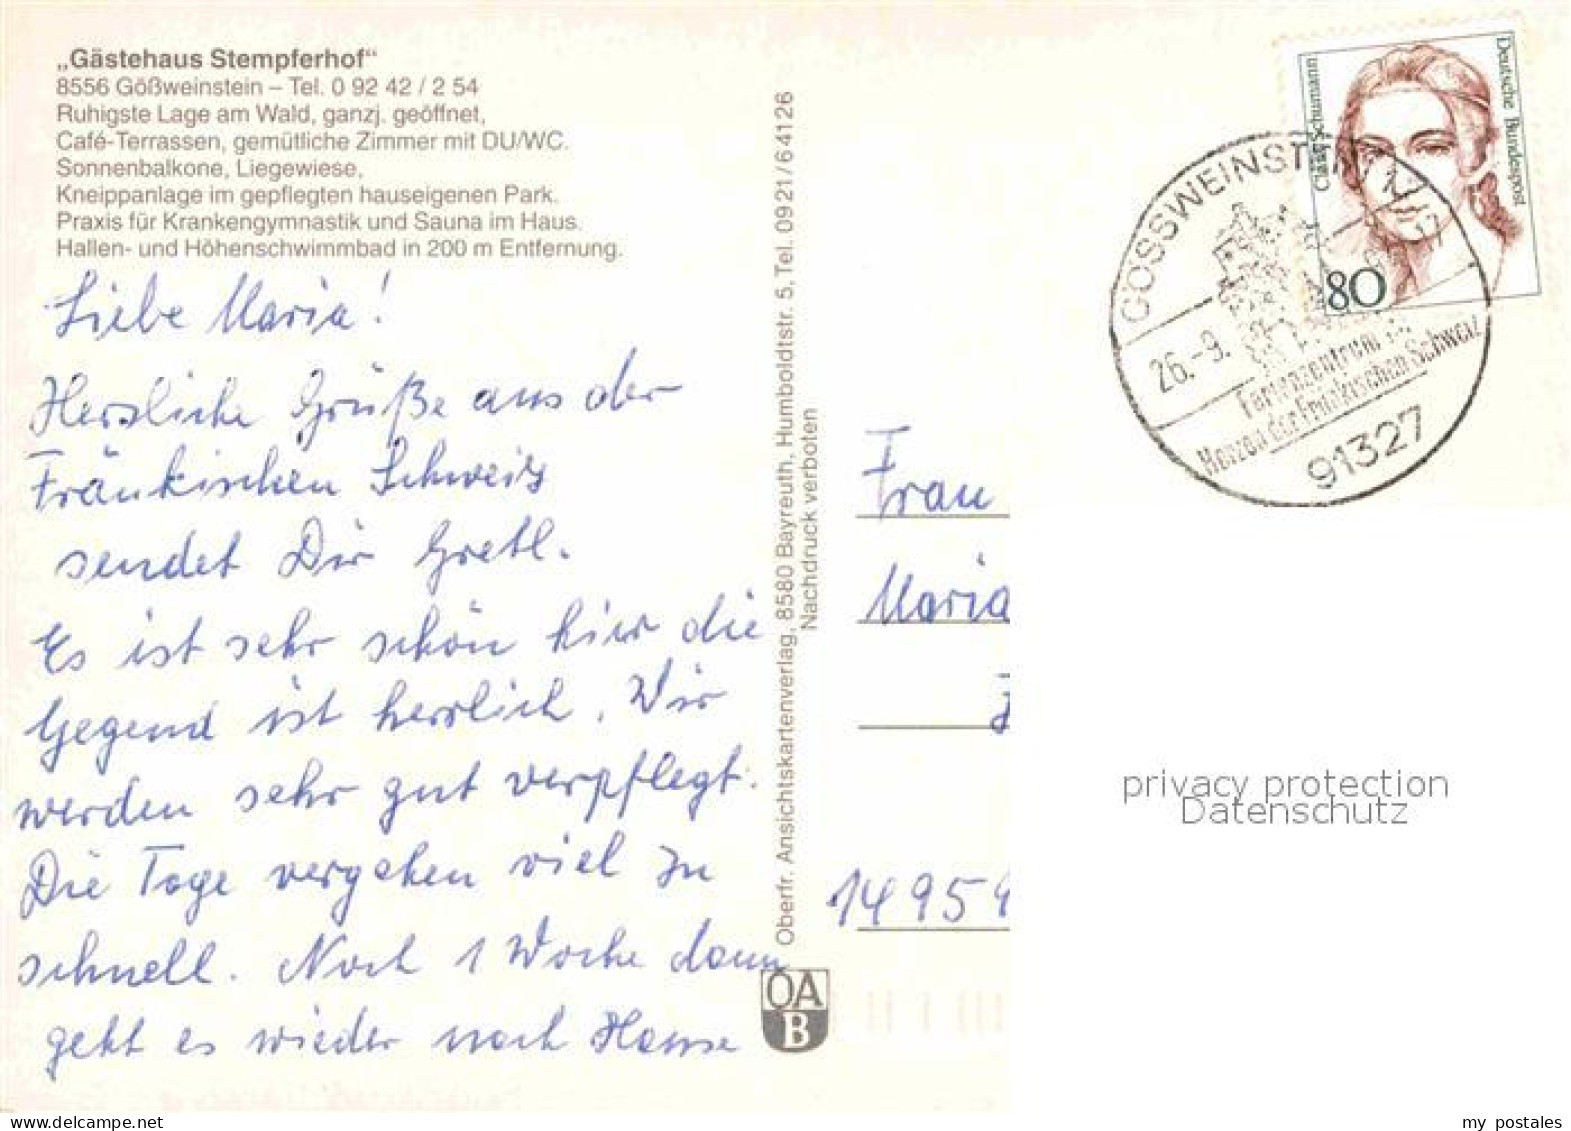 „Gästehaus Stempferhof“
8556 Gößweinstein – Tel. 0 92 42 / 2 54
Ruhigste Lage am Wald, ganzj. geöffnet,
Café-Terrassen, gemütliche Zimmer mit DU/WC.
Sonnenbalkone, Liegewiese,
Kneippanlage im gepflegten hauseigenen Park.
Praxis für Krankengymnastik und Sauna im Haus.
Hallen- und Höhenschwimmbad in 200 m Entfernung.
Liebe Maria!
Herzliche Grüße aus der
Fränkischen Schweiz
sendet Dir Gretl.
Es ist sehr schön hier die
Gegend ist herrlich. Wir
werden sehr gut verpflegt.
Die Tage vergehen viel zu
schnell. Noch 1 Woche dann
geht es wieder nach Hause
Oberfr. Ansichtskartenverlag, 8580 Bayreuth, Humboldtstr. 5, Tel. 0921/64126
Nachdruck verboten
OAB
Clara Schumann
Deutsche Bundespost
80
GÖSSWEINSTEIN 1
26.-9.
17
Ferienzentrum im
Herzen der Fränkischen Schweiz
91327
Frau
Maria
14959
privacy protection
Datenschutz
delcampe.net
my_postales